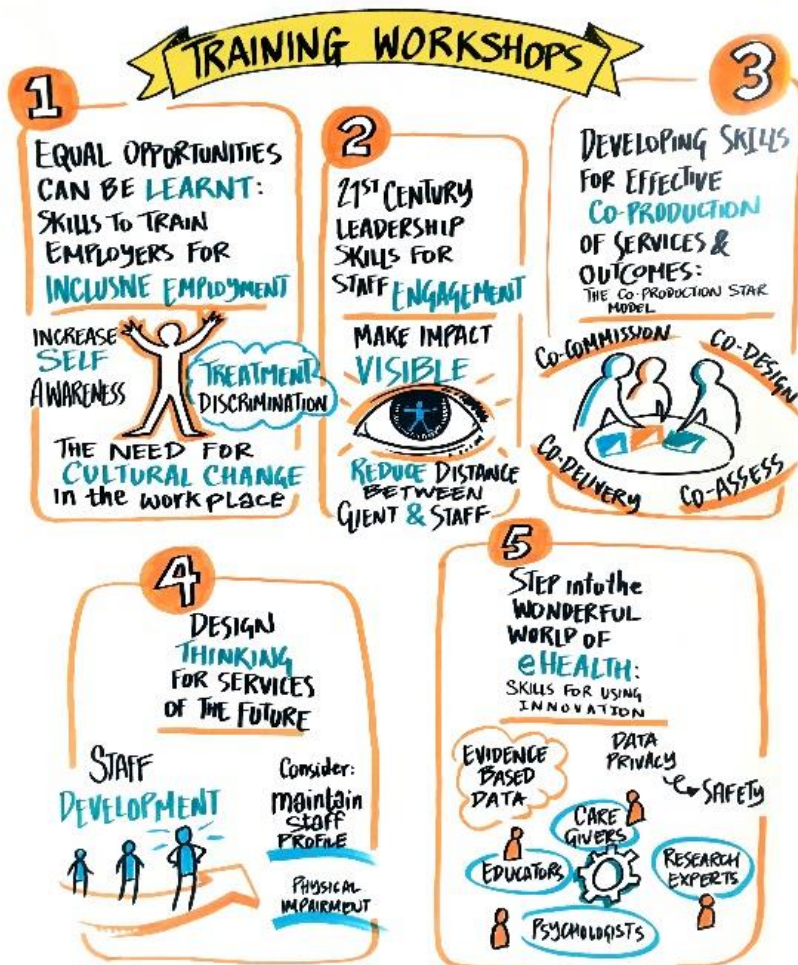 TRAINING WORKSHOPS
1
EQUAL OPPORTUNITIES
CAN BE LEARNT:
SKILLS TO TRAIN
EMPLOYERS FOR
INCLUSIVE EMPLOYMENT
INCREASE
SELF
AWARENESS
TREATMENT
DISCRIMINATION
THE NEED FOR
CULTURAL CHANGE
in the workplace
2
21ST CENTURY
LEADERSHIP
SKILLS FOR
STAFF ENGAGEMENT
MAKE IMPACT
VISIBLE
REDUCE DISTANCE
BETWEEN
CLIENT & STAFF
3
DEVELOPING SKILLS
FOR EFFECTIVE
CO-PRODUCTION
OF SERVICES &
OUTCOMES:
THE CO-PRODUCTION STAR
MODEL
CO-COMMISSION
CO-DESIGN
CO-DELIVERY
CO-ASSESS
4
DESIGN
THINKING
FOR SERVICES
OF THE FUTURE
STAFF
DEVELOPMENT
Consider:
maintain
staff
PROFILE
PHYSICAL
IMPAIRMENT
5
STEP into the
WONDERFUL
WORLD OF
eHEALTH:
SKILLS FOR USING
INNOVATION
EVIDENCE
BASED
DATA
DATA
PRIVACY
SAFETY
CARE
GIVERS
EDUCATORS
RESEARCH
EXPERTS
PSYCHOLOGISTS